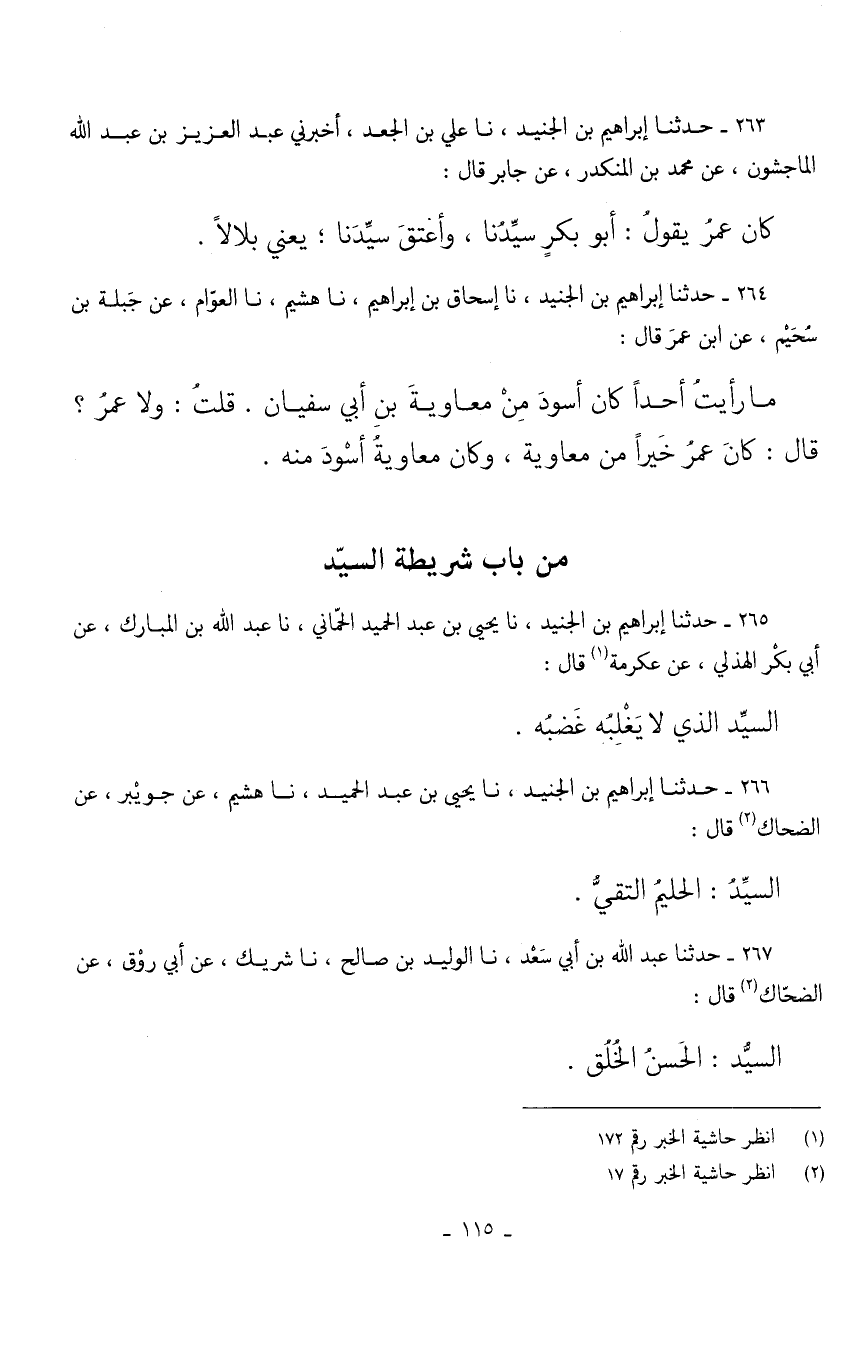 ٢٦٣ ـ حدثنا إبراهيم بن الجنيد ، نا علي بن الجعد ، أخبرني عبد العزيز بن عبد الله
الماجشون ، عن محمد بن المنكدر ، عن جابر قال :
كان عمرُ يقولُ : أبو بكرٍ سيِّدُنا ، وأعْتقَ سيِّدَنا ؛ يعني بلالاً .
٢٦٤ ـ حدثنا إبراهيم بن الجنيد ، نا إسحاق بن إبراهيم ، نا هشيم ، نا العوّام ، عن جَبلة بن
سُحَيْم ، عن ابن عمرَ قال :
ما رأيتُ أحداً كان أسودَ مِنْ معاويةَ بنِ أبي سفيان . قلتُ : ولا عمرُ ؟
قال : كانَ عمرُ خَيراً من معاوية ، وكان معاويةُ أسْودَ منه .
من باب شريطة السيّد
٢٦٥ ـ حدثنا إبراهيم بن الجنيد ، نا يحيى بن عبد الحميد الحمّاني ، نا عبد الله بن المبارك ، عن
أبي بكْر الهذلي ، عن عكرمة(١) قال :
السيِّد الذي لا يَغْلِبُه غَضبُه .
٢٦٦ ـ حدثنا إبراهيم بن الجنيد ، نا يحيى بن عبد الحميد ، نا هشيم ، عن جويْبر ، عن
الضحاك(٢) قال :
السيِّدُ : الحليمُ التقيُّ .
٢٦٧ ـ حدثنا عبد الله بن أبي سَعْد ، نا الوليد بن صالح ، نا شريك ، عن أبي روْق ، عن
الضحّاك(٢) قال :
السيُّد : الحَسنُ الخُلُق .
(١) انظر حاشية الخبر رقم ١٧٢
(٢) انظر حاشية الخبر رقم ١٧
ـ ١١٥ ـ